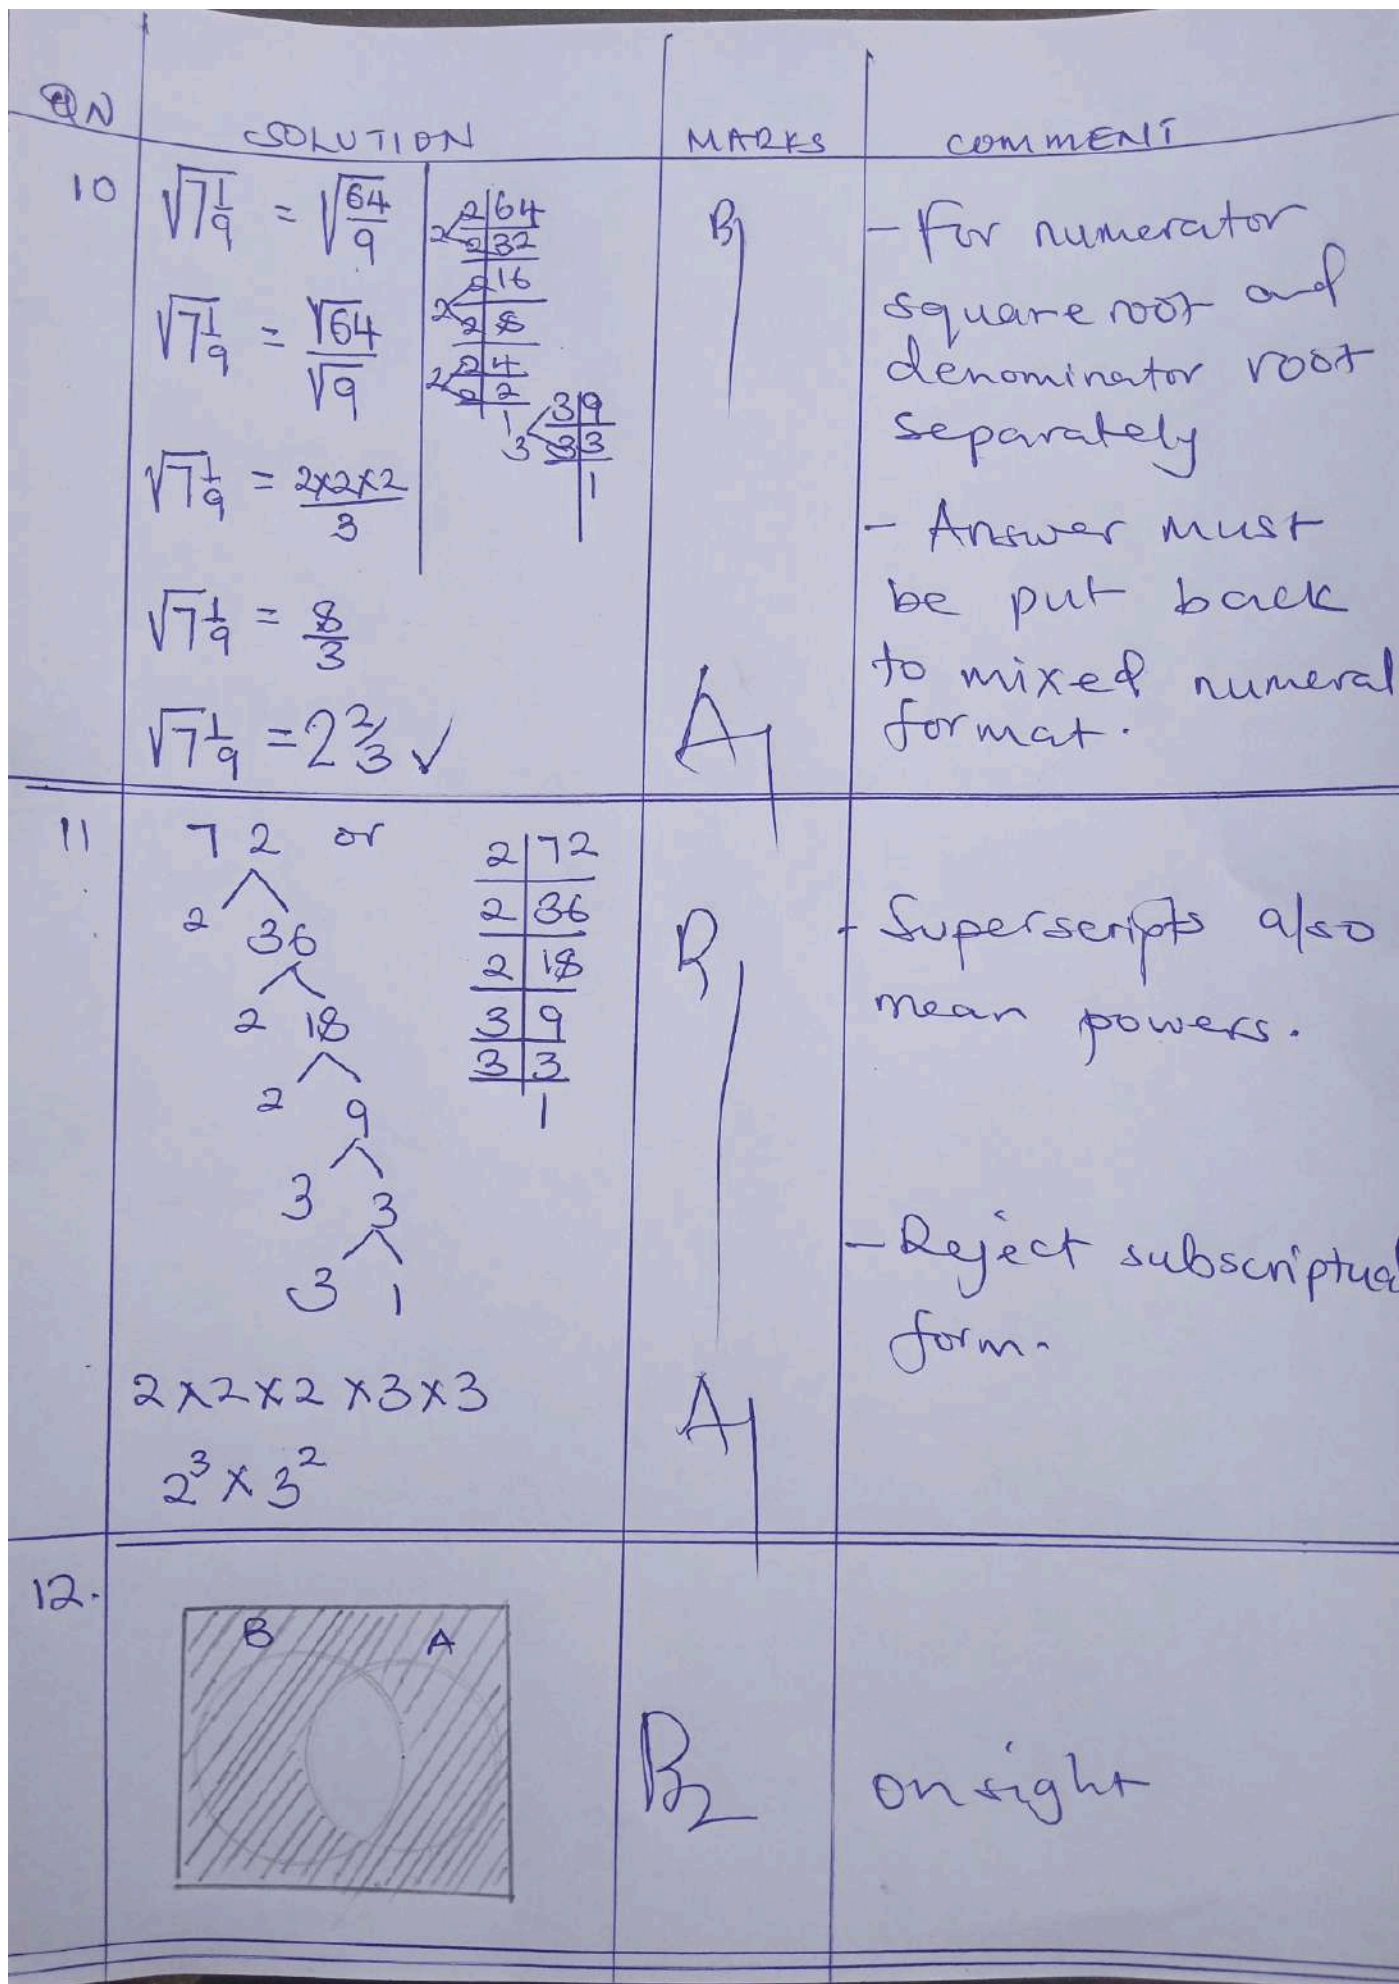 QN SOLUTION MARKS COMMENT
10 √7 1/9 = √64/9
√7 1/9 = √64/√9
√7 1/9 = 2×2×2/3
√7 1/9 = 8/3
√7 1/9 = 2 2/3 ✓
2 2|64
2|32
2 2|16
2|8
2 2|4
2|2
1
3 3|9
3|3
1
B1
A1
- For numerator
square root and
denominator root
separately
- Answer must
be put back
to mixed numeral
format.
11 72 or
2 36
2 18
2 9
3 3
3 1
2|72
2|36
2|18
3|9
3|3
1
2×2×2×3×3
2³×3²
B1
A1
- Superscripts also
mean powers.
- Reject subscriptual
form.
12.
B A
B2
onsight